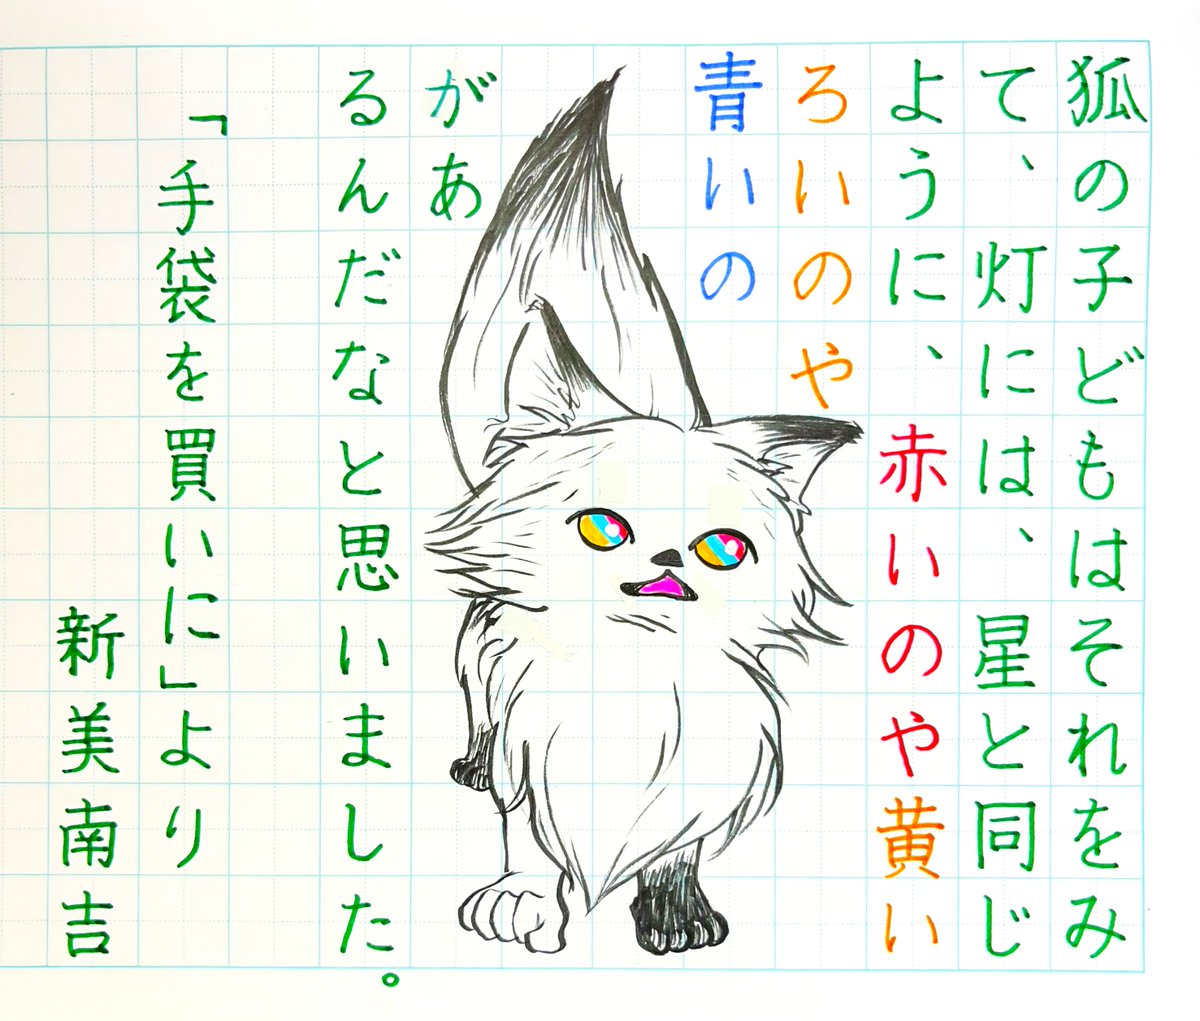 狐の子どもはそれをみ
て、灯には、星と同じ
ように、赤いのや黄い
ろいのや
青いの
があ
るんだなと思いました。
「手袋を買いに」より
新美南吉